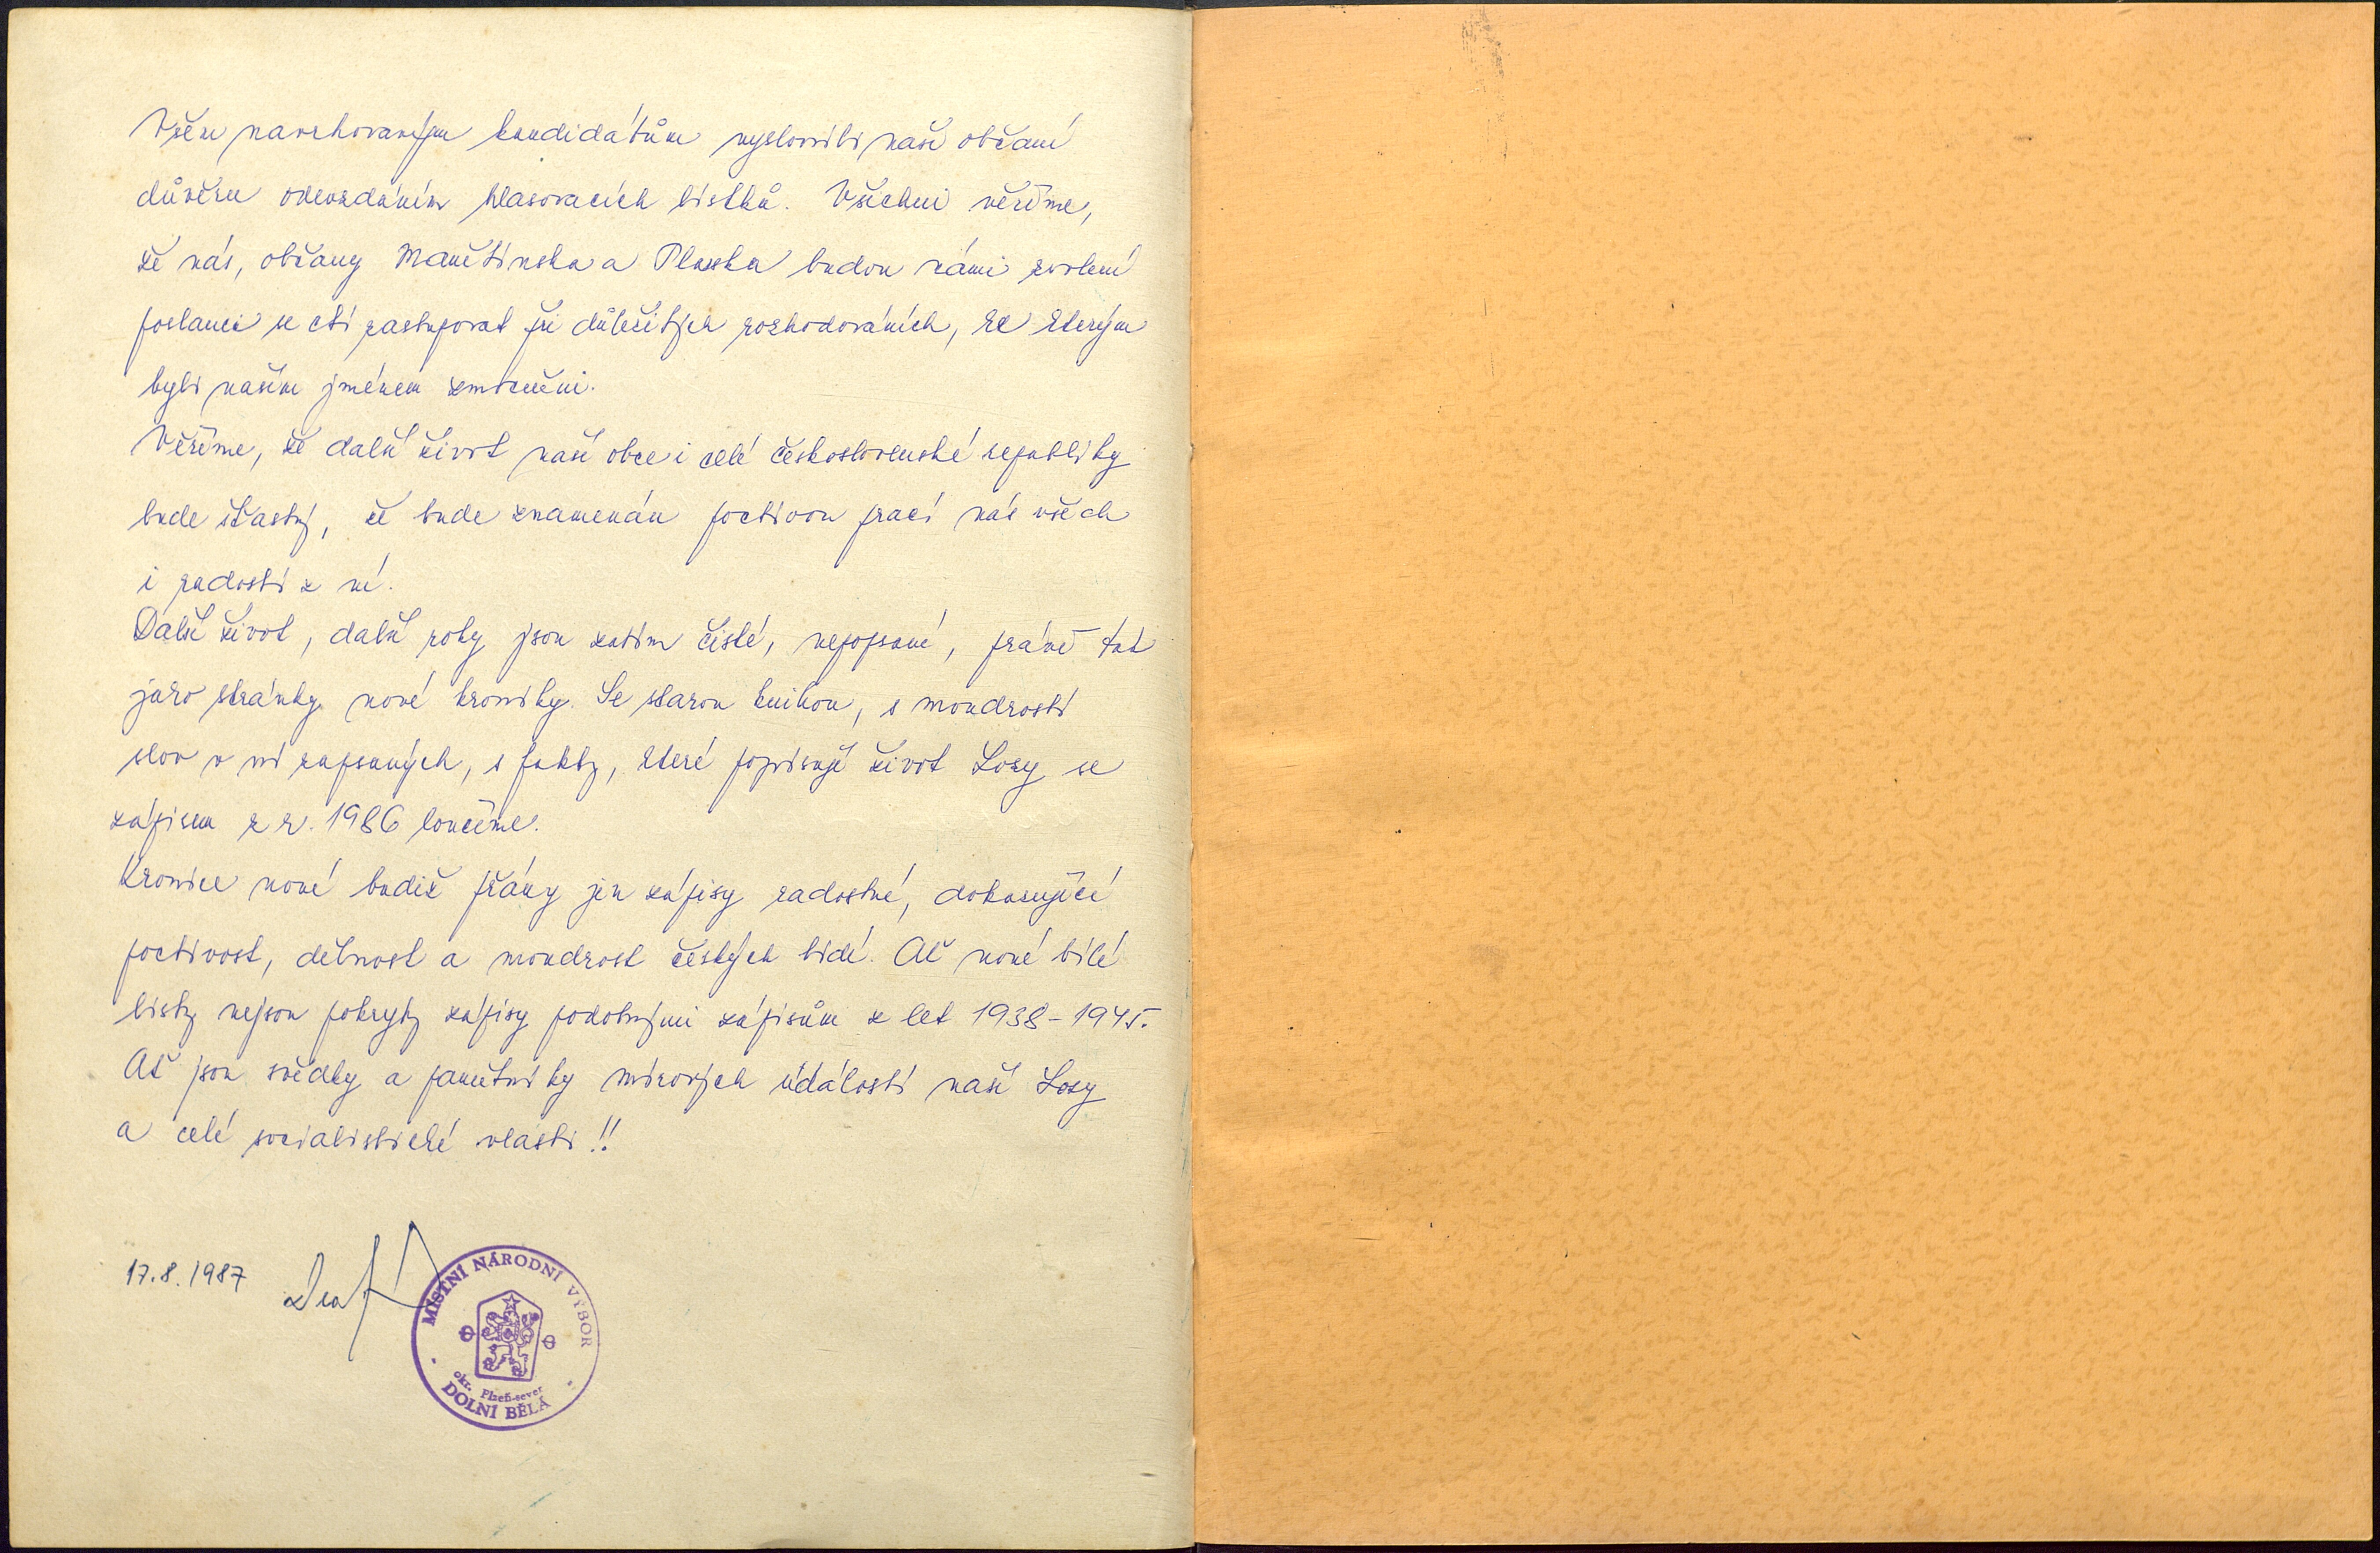 Všem navrhovaným kandidátům vyslovili naši občané
důvěru odevzdáním hlasovacích lístků. Všichni věříme,
že nás, občany Manětínska a Plasska budou námi zvolení
poslanci se ctí zastupovat při důležitých rozhodováních, ke kterým
byli naším jménem zmocněni.
Věříme, že další život naší obce i celé československé republiky
bude šťastný, že bude znamenán poctivou prací nás všech
i radostí z ní.
Další život, další roky jsou zatím čisté, nepopsané, právě tak
jako stránky nové kroniky. Se starou knihou, s moudrostí
slov v ní zapsaných, s fakty, které popisují život Lozy se
zápisem z r. 1986 loučíme.
Kronice nové budiž přány jen zápisy radostné, dokazující
poctivost, dělnost a moudrost českých lidí. Ať nové bílé
listy nejsou pokryty zápisy podobnými zápisům z let 1938-1945.
Ať jsou svědky a pamětníky mírových událostí naší Lozy
a celé socialistické vlasti!!
17.8.1987
MÍSTNÍ NÁRODNÍ VÝBOR
okr. Plzeň-sever
DOLNÍ BĚLÁ